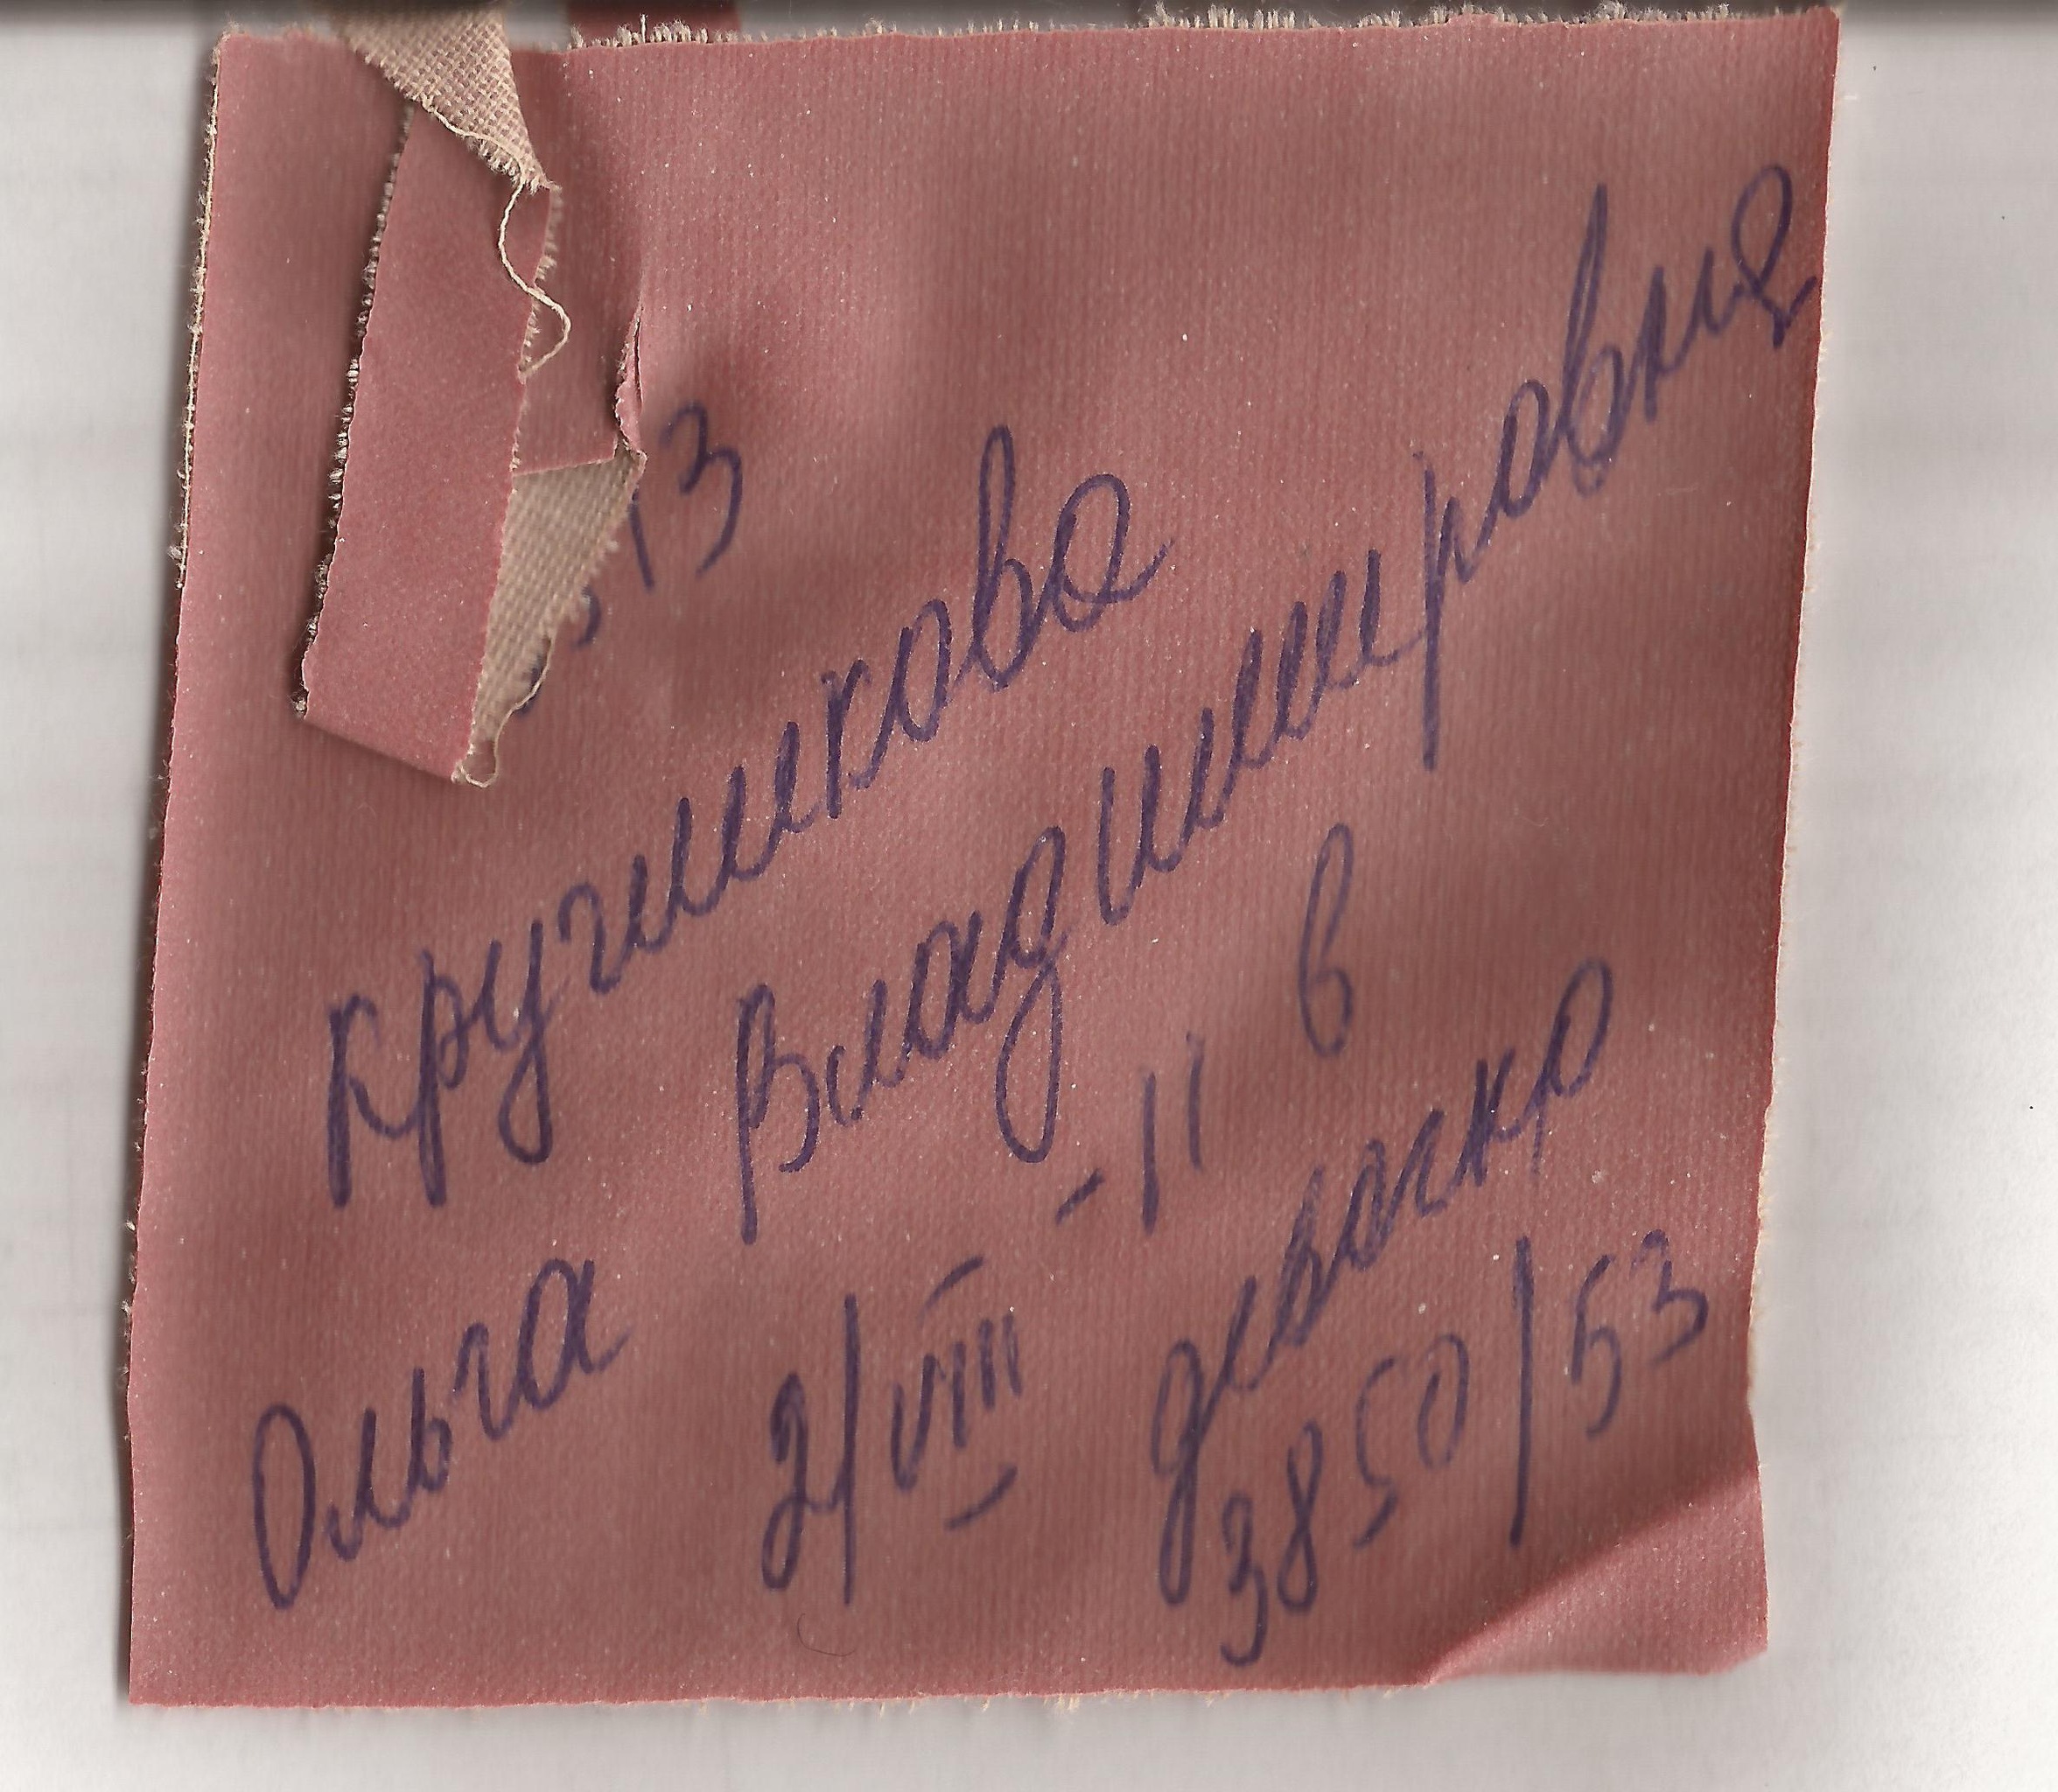 13
Кругликова
Ольга Владимировна
2/VIII - 11 6
девочка
3850/53